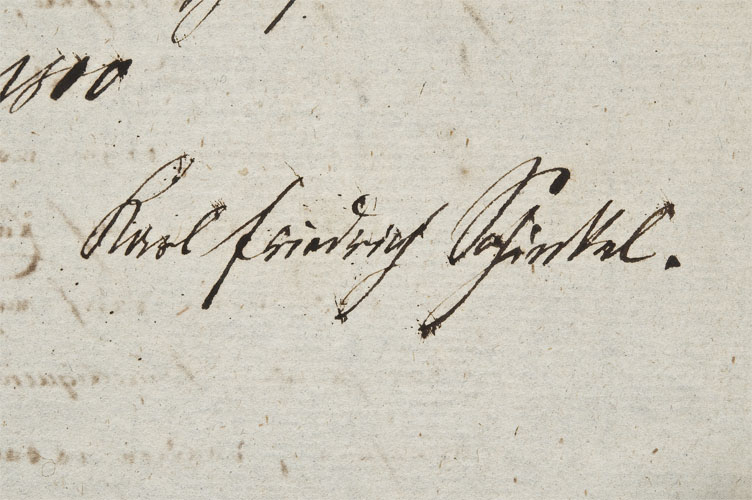 1800
Karl Friedrich Schinkel.